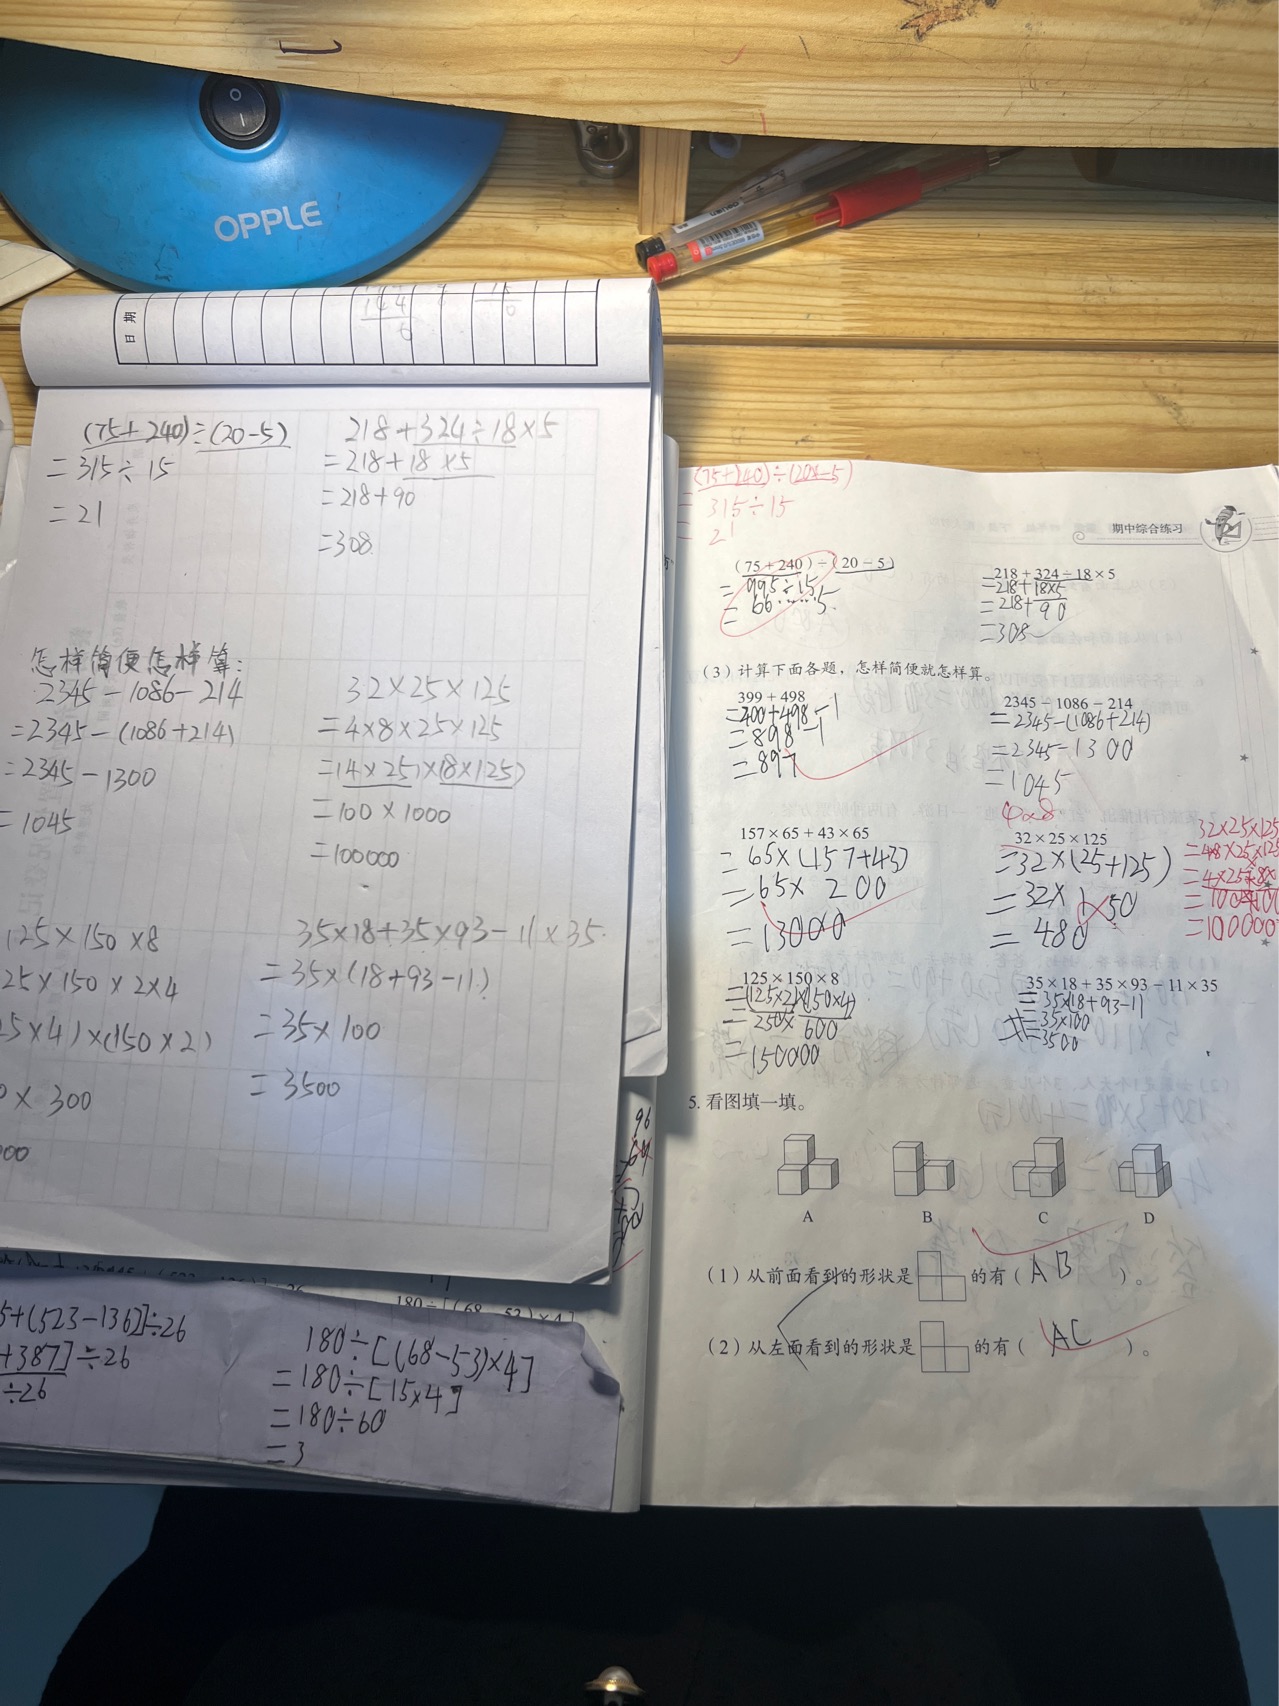 OPPLE
日期
144
6
(75+240)÷(20-5)
=315÷15
=21
218+324÷18×5
=218+18×5
=218+90
=308
怎样简便怎样算:
2345-1086-214
=2345-(1086+214)
=2345-1300
=1045
32×25×125
=4×8×25×125
=(4×25)×(8×125)
=100×1000
=100000
125×150×8
25×150×2×4
5×4)×(150×2)
0×300
00
35×18+35×93-11×35
=35×(18+93-11)
=35×100
=3500
5+(523-136]÷26
+387]÷26
÷26
180÷[(68-53)×4]
=180÷[15×4]
=180÷60
=3
315÷15
21
期中综合练习
(75+240)÷(20-5)
=995÷15
=66……5
218+324÷18×5
=218+18×5
=218+90
=308
(3)计算下面各题,怎样简便就怎样算。
399+498
=400+498-1
=898-1
=897
2345-1086-214
=2345-(1086+214)
=2345-1300
=1045
157×65+43×65
=65×(157+43)
=65×200
=13000
4×8
32×25×125
=32×(25+125)
=32×150
=480
32×25×125
=4×8×25×125
=100000
125×150×8
=(125×2)×(150×4)
=250×600
=150000
35×18+35×93-11×35
=35×(18+93-11
=35×100
=3500
5.看图填一填。
A B C D
(1)从前面看到的形状是 的有( AB )。
(2)从左面看到的形状是 的有( AC )。